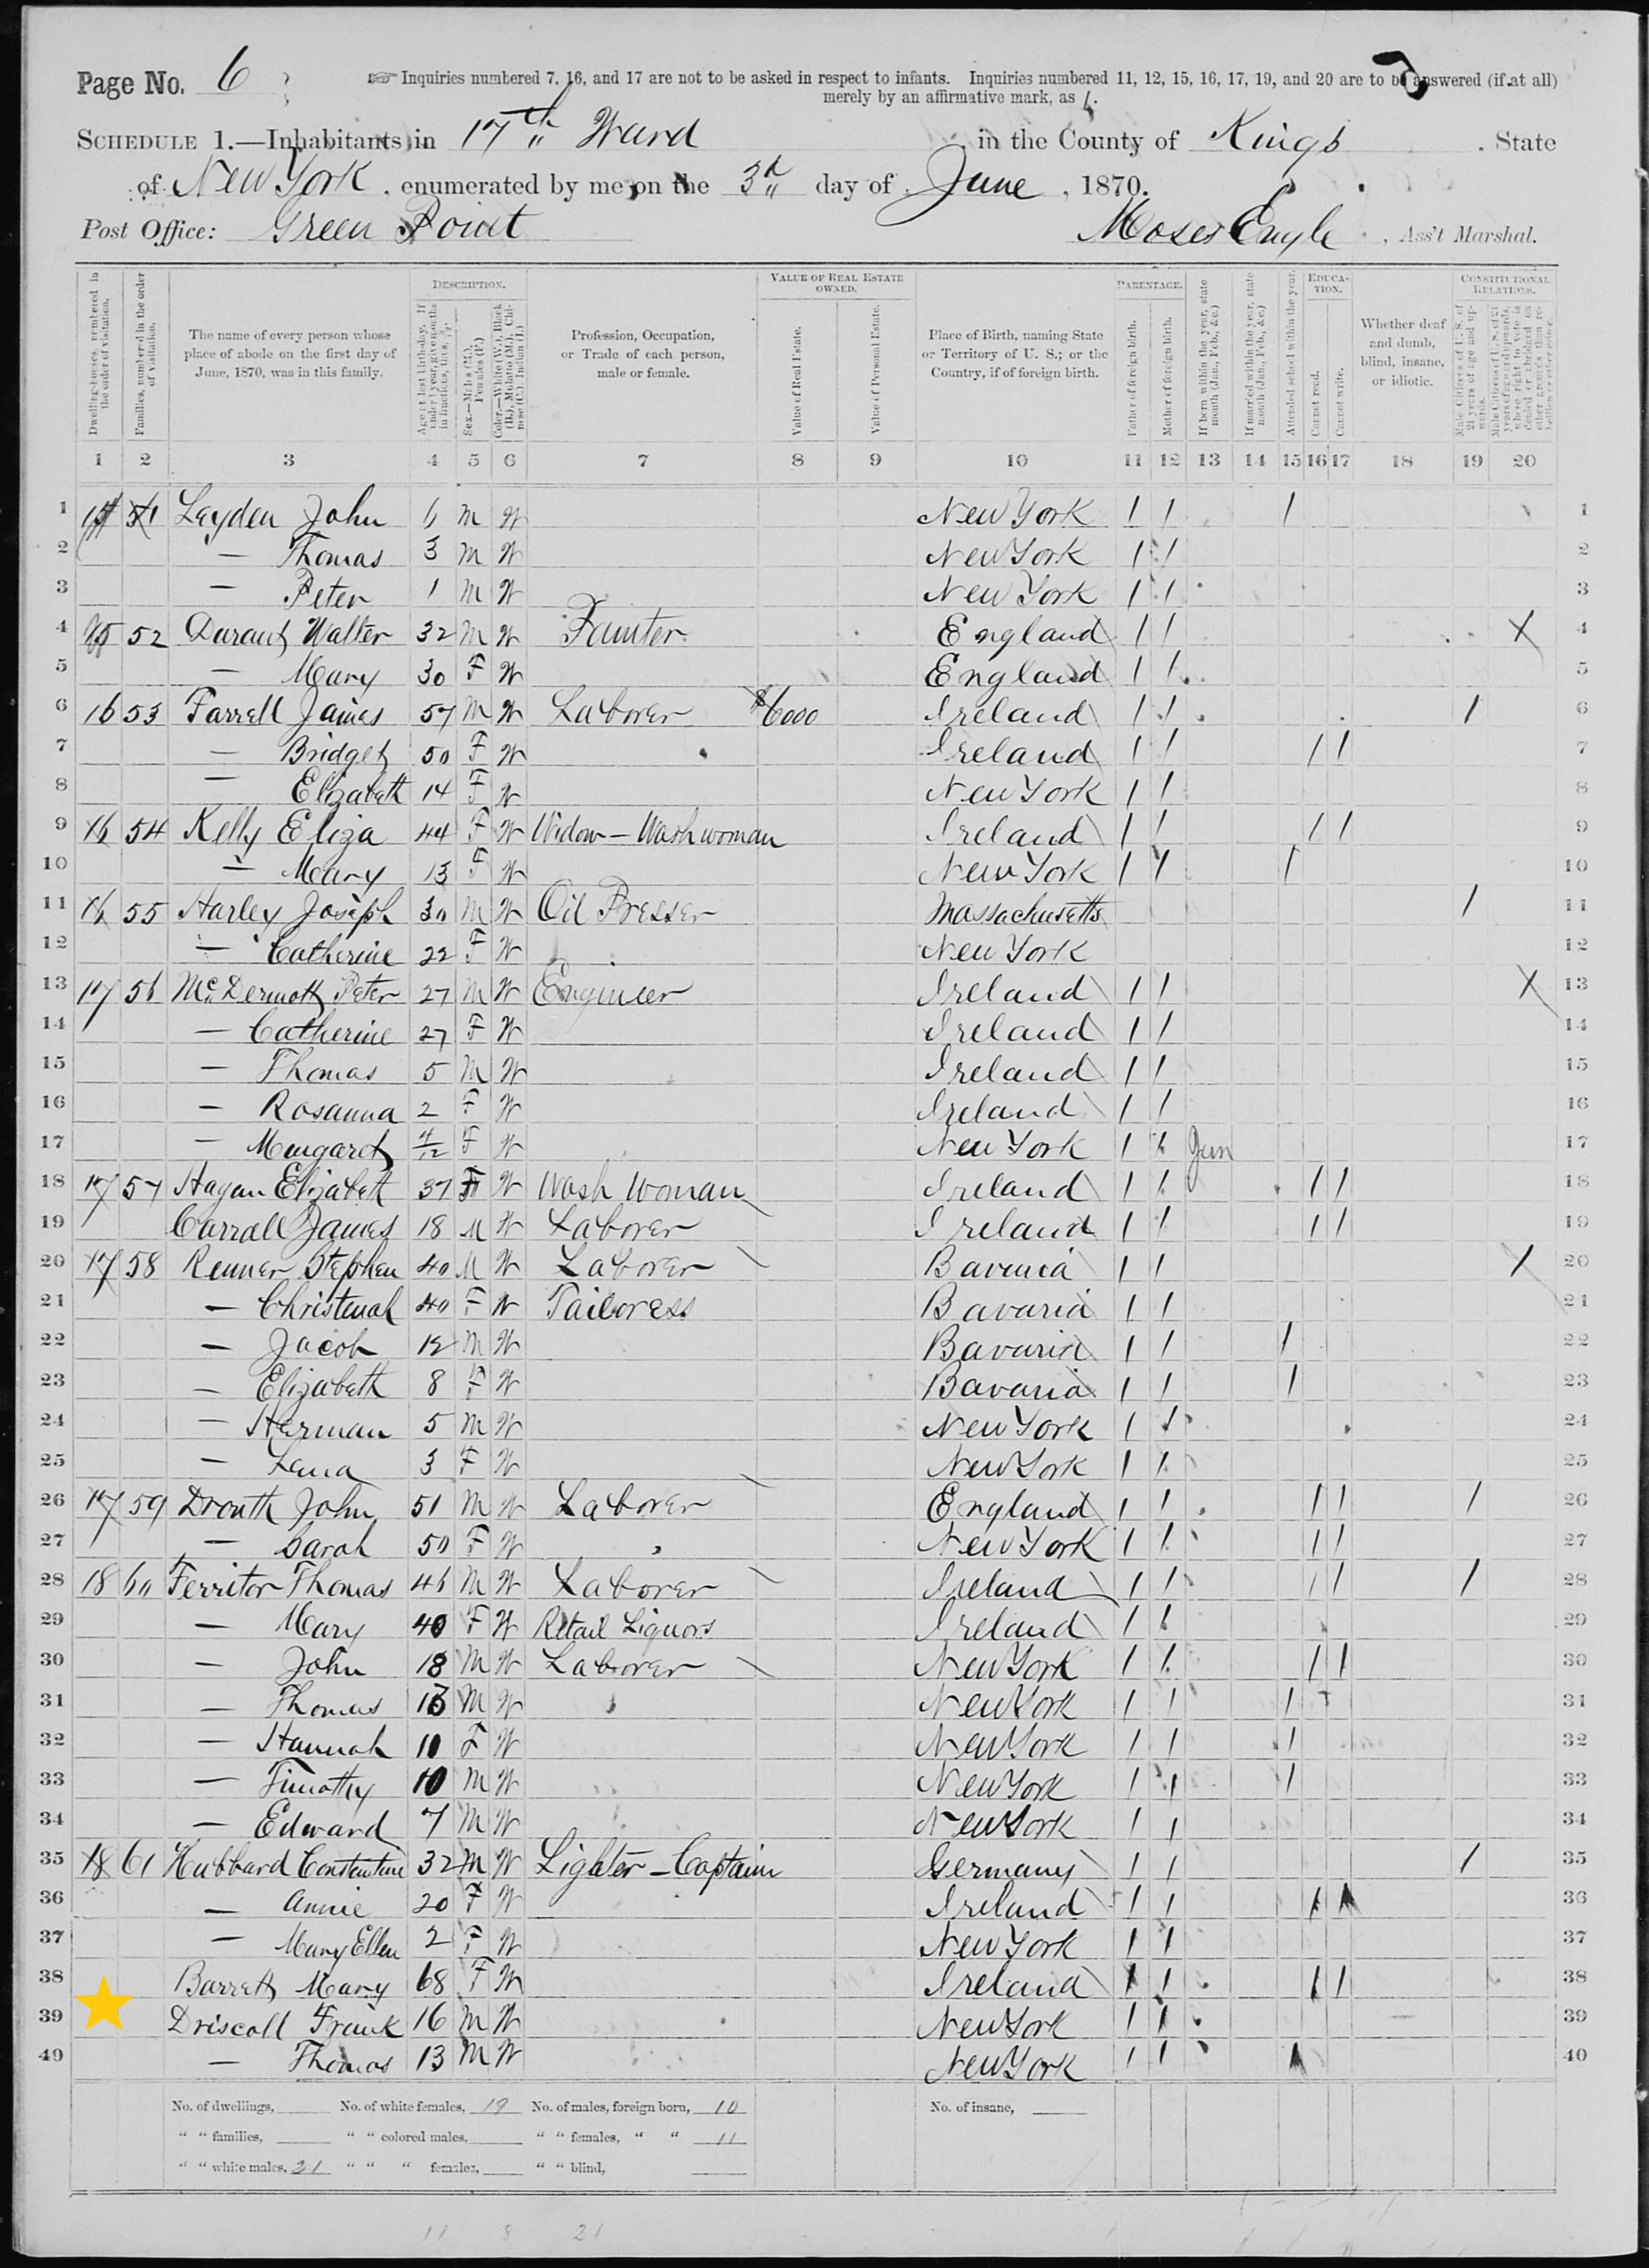 Page No. 6
☞ Inquiries numbered 7, 16, and 17 are not to be asked in respect to infants. Inquiries numbered 11, 12, 15, 16, 17, 19, and 20 are to be answered (if at all)
merely by an affirmative mark, as /.
SCHEDULE 1.—Inhabitants in 17th Ward in the County of Kings State
of New York, enumerated by me on the 3d day of June, 1870.
Post Office: Green Point Moses Engle, Ass't Marshal.
DESCRIPTION. VALUE OF REAL ESTATE OWNED. PARENTAGE. EDUCATION. CONSTITUTIONAL RELATIONS.
Dwelling-houses, numbered in the order of visitation.
Families, numbered in the order of visitation.
The name of every person whose place of abode on the first day of June, 1870, was in this family.
Age at last birth-day. If under 1 year, give months in fractions, thus,
Sex.—Males (M.), Females (F.)
Color.—White (W.), Black (B.), Mulatto (M.), Chinese (C.), Indian (I.)
Profession, Occupation, or Trade of each person, male or female.
Value of Real Estate.
Value of Personal Estate.
Place of Birth, naming State or Territory of U. S.; or the Country, if of foreign birth.
Father of foreign birth.
Mother of foreign birth.
If born within the year, state month (Jan., Feb., &c.)
If married within the year, state month (Jan., Feb., &c.)
Attended school within the year.
Cannot read.
Cannot write.
Whether deaf and dumb, blind, insane, or idiotic.
Male Citizens of U. S. of 21 years of age and upwards.
Male Citizens of U. S. of 21 years of age and upwards, whose right to vote is denied or abridged on other grounds than rebellion or other crime.
1 2 3 4 5 6 7 8 9 10 11 12 13 14 15 16 17 18 19 20
1 15 51 Leyden John 6 M W New York / / / 1
2 — Thomas 3 M W New York / / 2
3 — Peter 1 M W New York / / 3
4 15 52 Durant Walter 32 M W England / / X 4
5 — Mary 30 F W England / / 5
6 16 53 Farrell James 57 M W Laborer $6000 Ireland / / / 6
7 — Bridget 50 F W Ireland / / / / 7
8 — Elizabeth 14 F W New York / / 8
9 16 54 Kelly Eliza 44 F W Widow — Washwoman Ireland / / / / 9
10 — Mary 13 F W New York / / / 10
11 16 55 Harley Joseph 30 M W Oil Presser Massachusetts / 11
12 — Catherine 22 F W New York 12
13 17 56 McDermott Peter 27 M W Engineer Ireland / / X 13
14 — Catherine 27 F W Ireland / / 14
15 — Thomas 5 M W Ireland / / 15
16 — Rosanna 2 F W Ireland / / 16
17 — Margaret F W New York / / Jan 17
18 17 57 Hagan Elizabeth 37 F W Wash Woman Ireland / / / / 18
19 Carrall James 18 M W Laborer Ireland / / / / 19
20 17 58 Renner Stephen 40 M W Laborer Bavaria / / X 20
21 — Christenah 40 F W Tailoress Bavaria / / 21
22 — Jacob 12 M W Bavaria / / / 22
23 — Elizabeth 8 F W Bavaria / / / 23
24 — Herman 5 M W New York / / 24
25 — Lena 3 F W New York / / 25
26 17 59 Drouth John 51 M W Laborer England / / / / / 26
27 — Sarah 50 F W New York / / / / 27
28 18 60 Ferritor Thomas 46 M W Laborer Ireland / / / / / 28
29 — Mary 40 F W Retail Liquors Ireland / / 29
30 — John 18 M W Laborer New York / / / / 30
31 — Thomas 13 M W New York / / / 31
32 — Hannah 10 F W New York / / / 32
33 — Timothy 10 M W New York / / / 33
34 — Edward 7 M W New York / / 34
35 18 61 Hubbard Constantine 32 M W Lighter — Captain Germany / / / 35
36 — Annie 20 F W Ireland / / / / 36
37 — Mary Ellen 2 F W New York / / 37
38 Barrett Mary 68 F W Ireland / / / / 38
39 Driscoll Frank 16 M W New York / / 39
49 — Thomas 13 M W New York / / / 40
No. of dwellings, No. of white females, 19 No. of males, foreign born, 10 No. of insane,
" " families, " " colored males, " " females, " " 11
" " white males, 21 " " " females, " " blind,
11 8 21